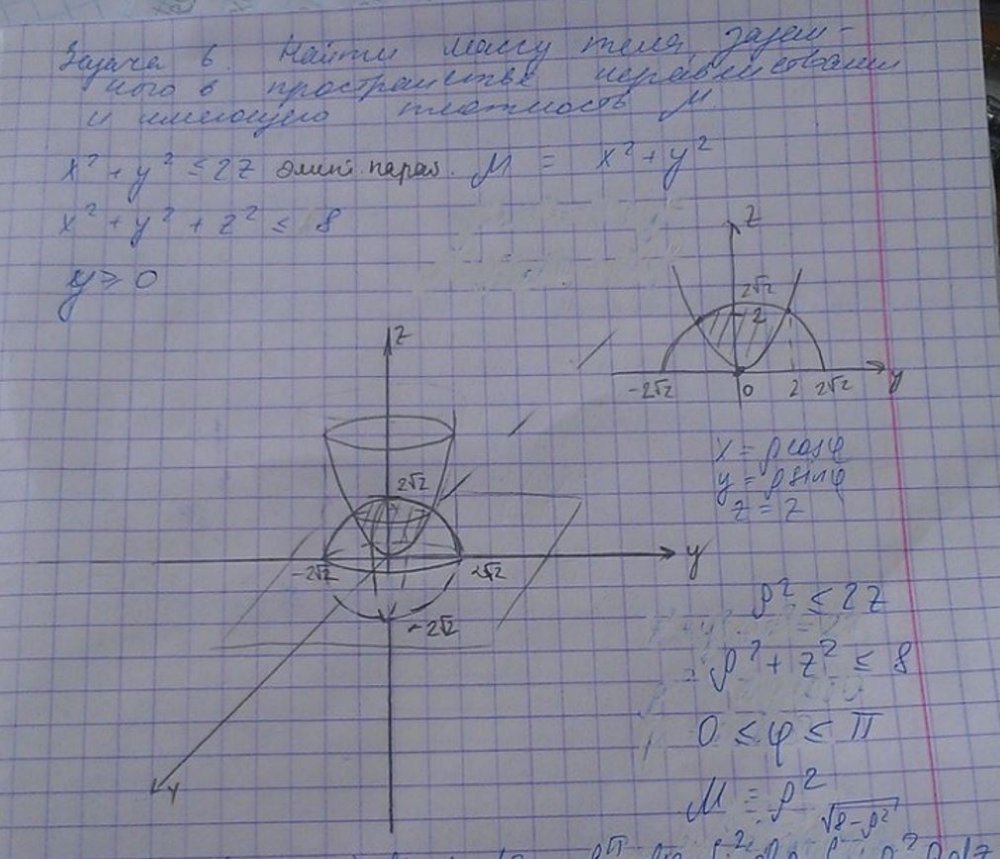 Задача 6. Найти массу тела, задан-
ного в пространстве неравенствами
и имеющего плотность μ
x² + y² ≤ 2z элип. параб. μ = x² + y²
x² + y² + z² ≤ 8
y ≥ 0
z
2√2
2
-2√2 0 2 2√2 y
z
2√2
-2√2 2√2 y
-2√2
x = ρcosφ
y = ρsinφ
z = z
ρ² ≤ 2z
ρ² + z² ≤ 8
0 ≤ φ ≤ π
μ = ρ²
√8-ρ²